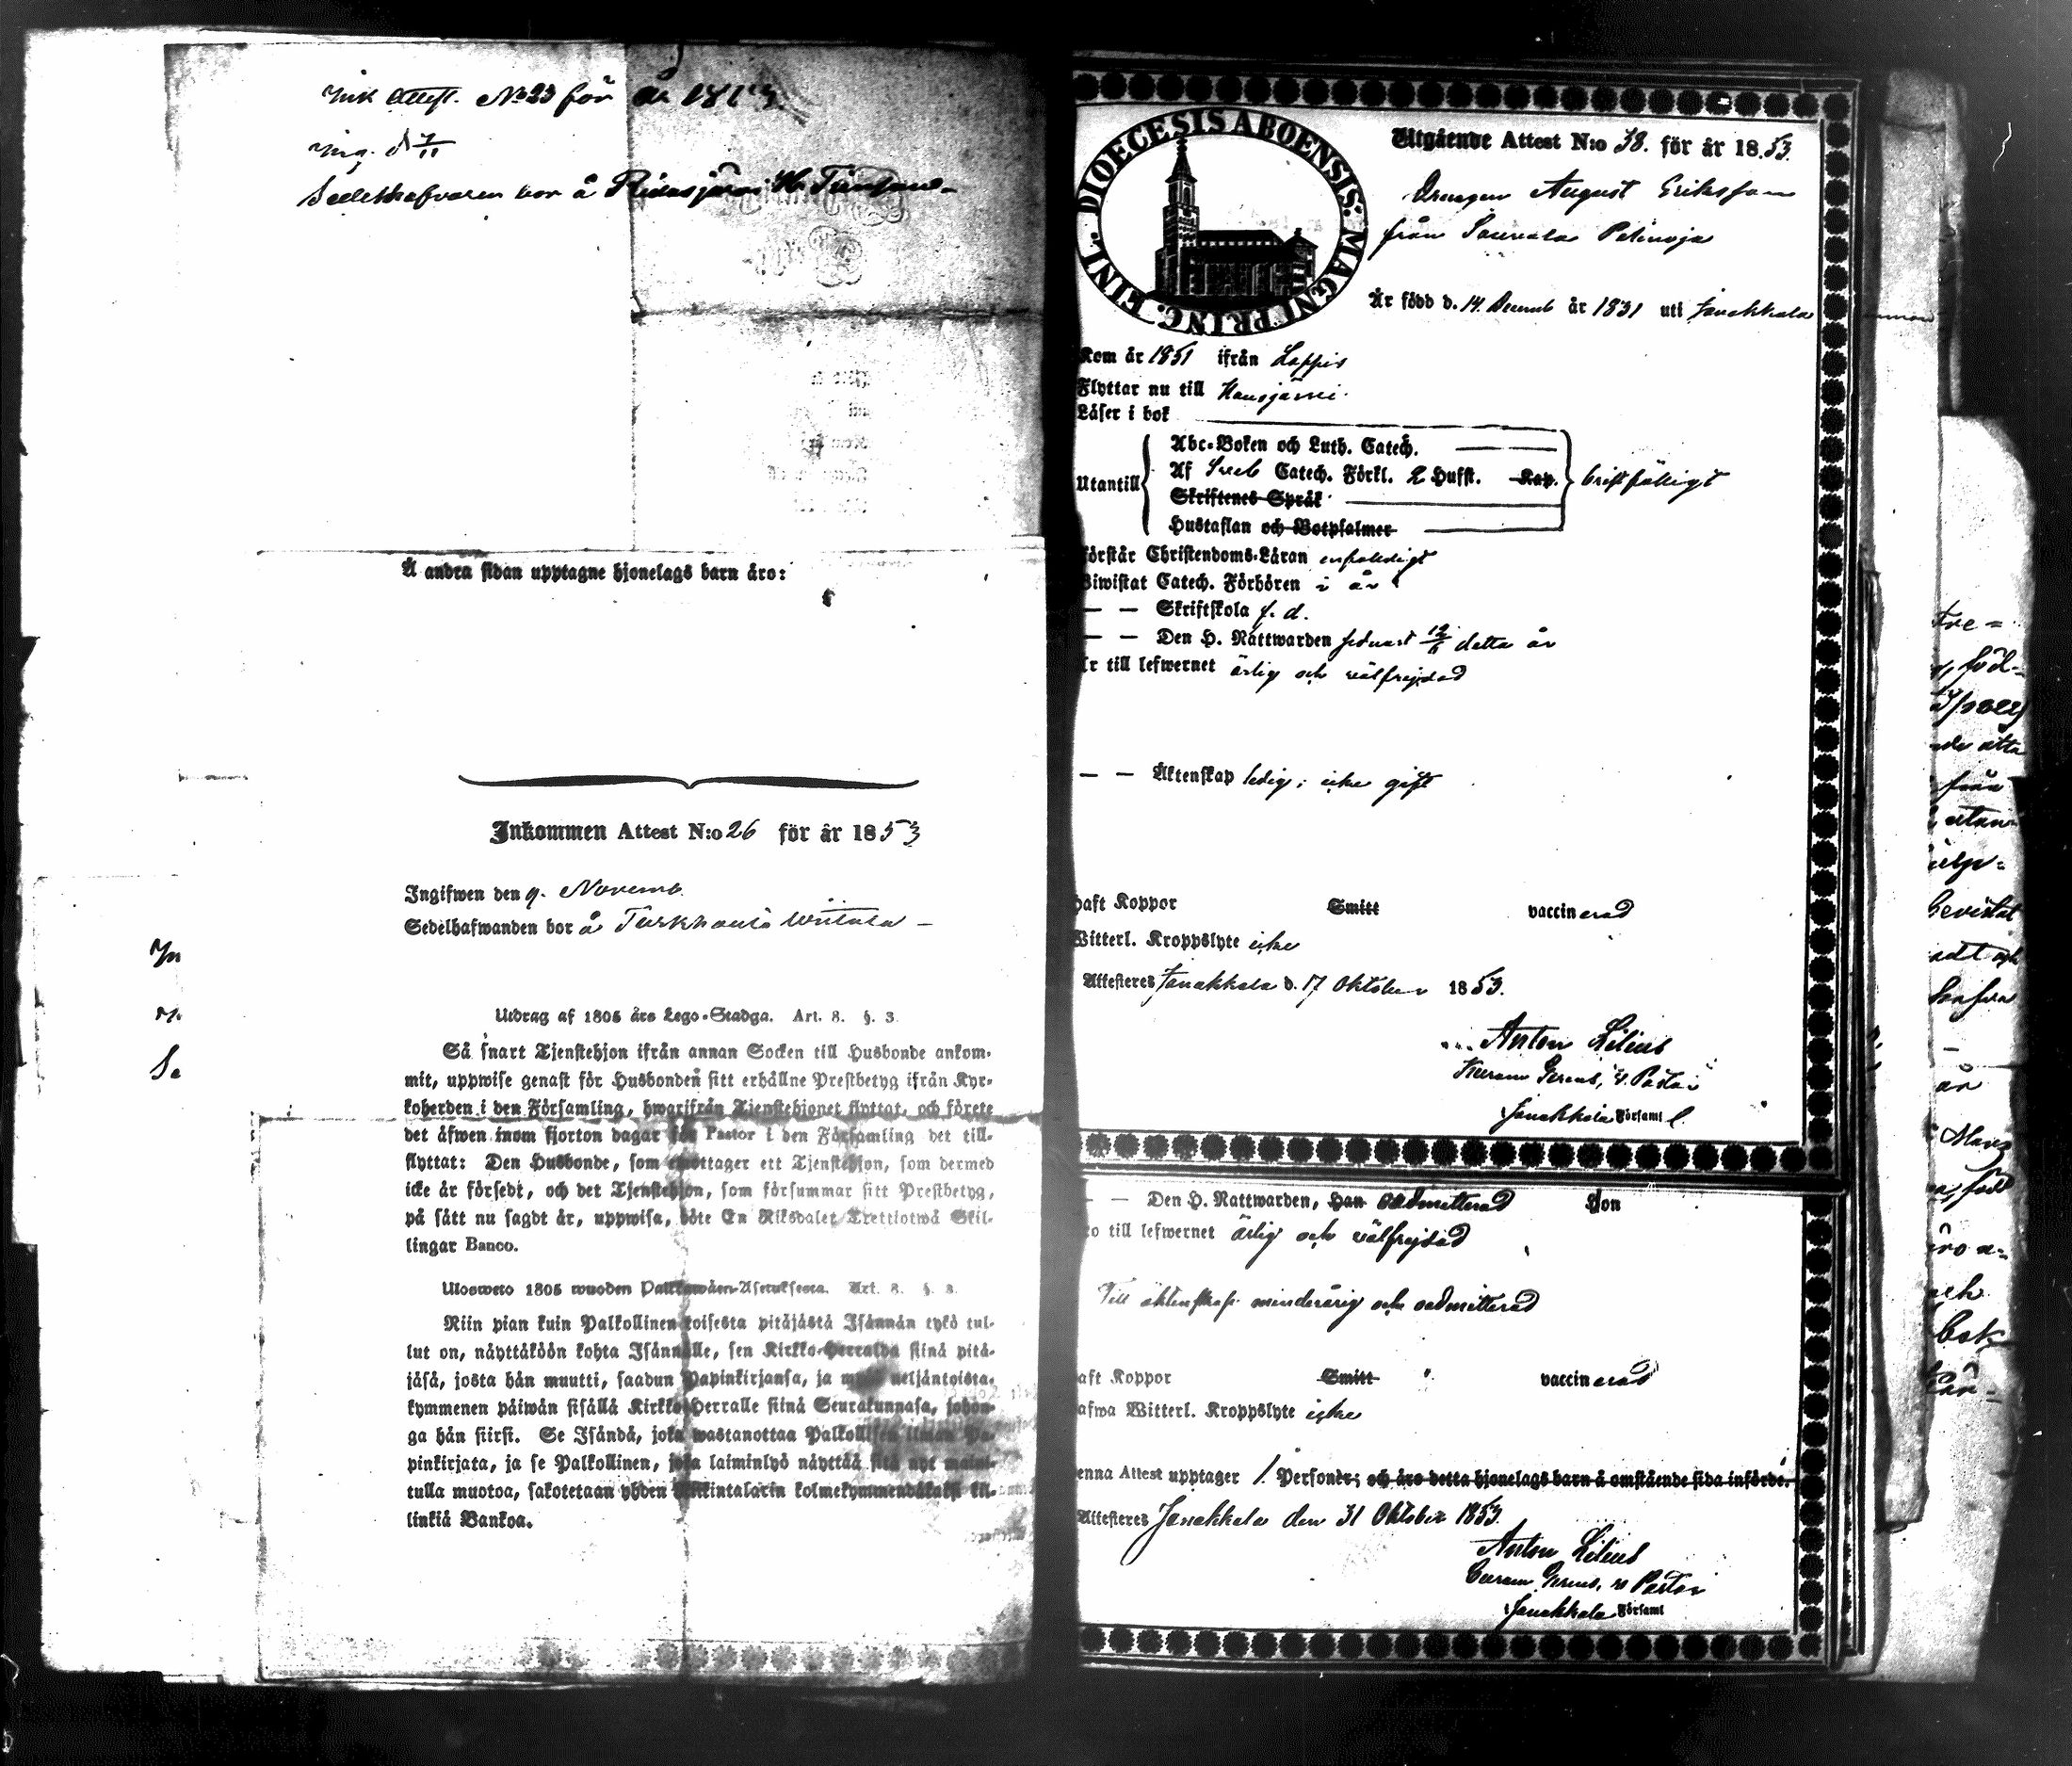 Ink Attest. No 23 för år 1853
Ing. d 7/11
Sedelhafvaren bor å
Å andra sidan upptagne hjonelags barn äro:
Inkommen Attest N:o 26 för år 1853
Ingifwen den 9. Novemb.
Sedelhafwanden bor å Turkhauta Wiitala
Utdrag af 1805 års Lego-Stadga. Art. 8. §. 3.
Så snart Tjenstehjon ifrån annan Socken till Husbonde ankom-
mit, uppwise genast för Husbonden sitt erhållne Prestbetyg ifrån Kyr-
koherden i den Församling, hwarifrån Tjenstehjonet flyttat, och förete
det äfwen inom fjorton dagar för Pastor i den Församling det till-
flyttat: Den Husbonde, som emottager ett Tjenstehjon, som dermed
icke är försedt, och det Tjenstehjon, som försummar sitt Prestbetyg,
på sätt nu sagdt är, uppwisa, böte En Riksdaler Trettiotwå Skil-
lingar Banco.
Ulosweto 1805 wuoden Palkkawäen-Asetuksesta. Art. 8. §. 3.
Niin pian kuin Palkollinen toisesta pitäjästä Isännän tykö tul-
lut on, näyttäköön kohta Isännälle, sen Kirkko-Herralda siinä pitä-
jäsä, josta hän muutti, saadun Papinkirjansa, ja myös neljäntoista-
kymmenen päiwän sisällä Kirkko-Herralle siinä Seurakunnasa, johon-
ga hän siirsi. Se Isändä, joka wastanottaa Palkollisen ilman Pa-
pinkirjata, ja se Palkollinen, joka laiminlyö näyttää sitä nyt maini-
tulla muotoa, sakotetaan yhden Riikintalarin kolmekymmendäkaksi kil-
linkiä Bankoa.
DIOECESIS ABOENSIS. MAGNI PRINC. FINL.
Utgående Attest N:o 38. för år 1853.
Drengen August Eriksson
från Saurala Pelinoja
Är född d. 14 Decemb år 1831 uti Janakkala
Kom år 1851 ifrån Loppis
Flyttar nu till Hausjärvi.
Läser i bok
Abc-Boken och Luth. Catech.
Utantill Af Sveb Catech. Förkl. 2 Hufst. Kap. bristfälligt
Skriftenes Språk
Hustaflan och Botpsalmer
Förstår Christendoms-Läran enfaldigt
Biwistat Catech. Förhören i år
— — Skriftskola f. d.
— — Den H. Nattwarden sednast 12/6 detta år
Är till lefwernet ärlig och välfrejdad
— — Äktenskap ledig; icke gift
haft Koppor Smitt vaccinerad
Witterl. Kroppslyte icke
Attesteres Janakkala d. 17 Oktober 1853.
Anton Lilius
Curam Gerens, v. Pastor
Janakkala Församl
— — Den H. Nattwarden, Han oadmitterad Hon
ro till lefwernet ärlig och välfrejdad
Till äktenskap minderårig och oadmitterad
aft Koppor Smitt vaccinerad
afwa Witterl. Kroppslyte icke
enna Attest upptager 1 Personer; och äro detta hjonelags barn å omstående sida införde.
Attesteres Janakkala den 31 Oktober 1853.
Anton Lilius
Curam Gerens, v Pastor
Janakkala Församl